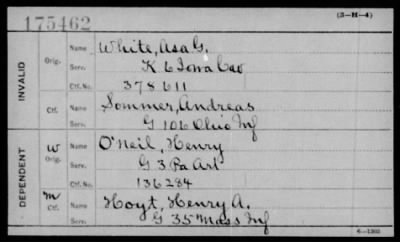 175462
(3-H-4)
INVALID
Orig. Name White, Asa G.
Serv. K 6 Iowa Cav
Ctf. No. 378611
Ctf. Name Sommer, Andreas
Serv. G 106 Ohio Inf
DEPENDENT
W Orig. Name O'Neil, Henry
Serv. G 3 Pa Art
Ctf. No. 136284
M Ctf. Name Hoyt, Henry A.
Serv. G 35 Mass Inf